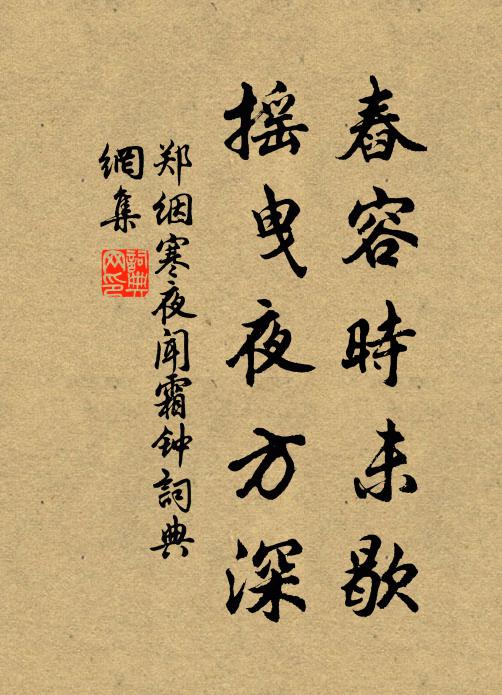 舂容時未歇
摇曳夜方深
郑絪寒夜闻霜钟詞典
網集
詞典
网印